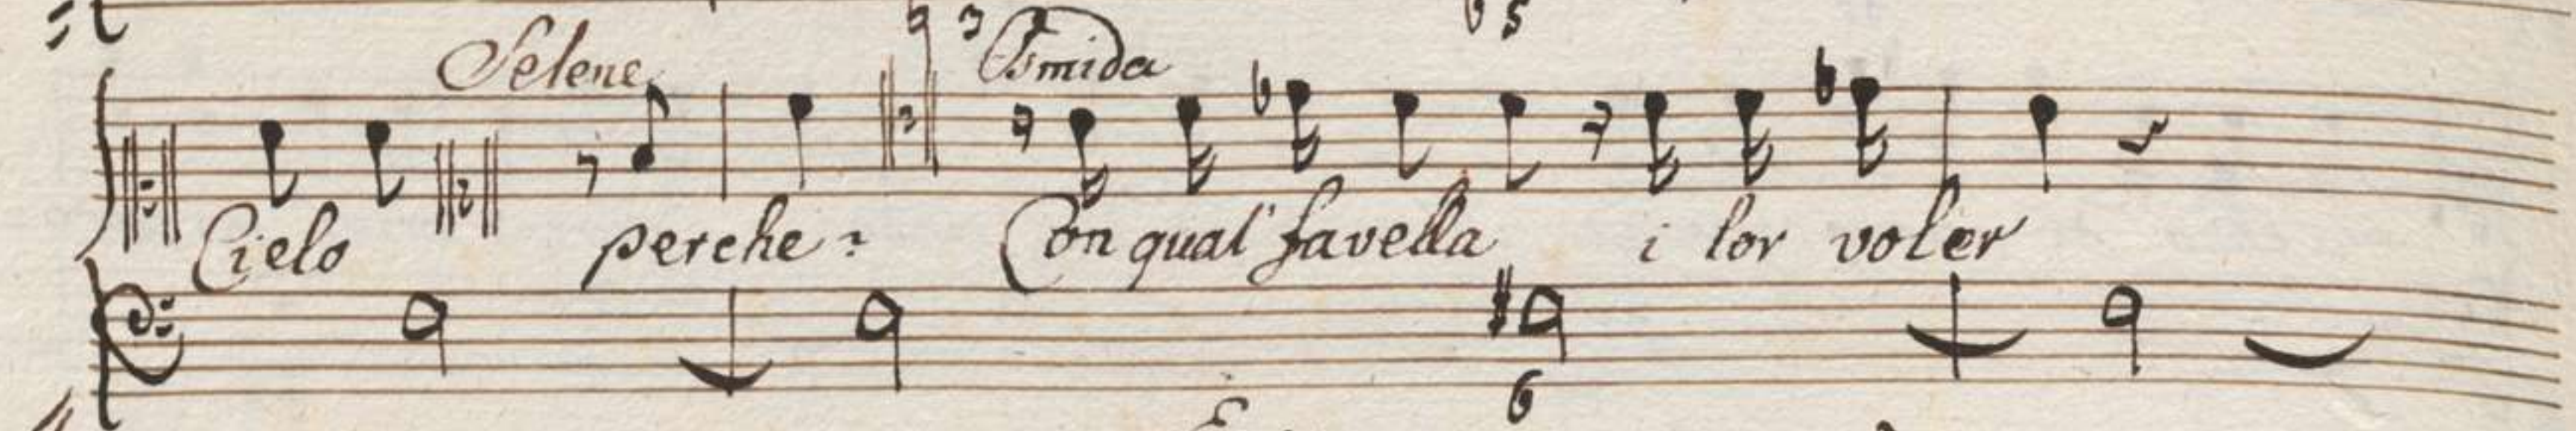 Selene Osmida
Cielo perche? Con qual favella i lor voler
6